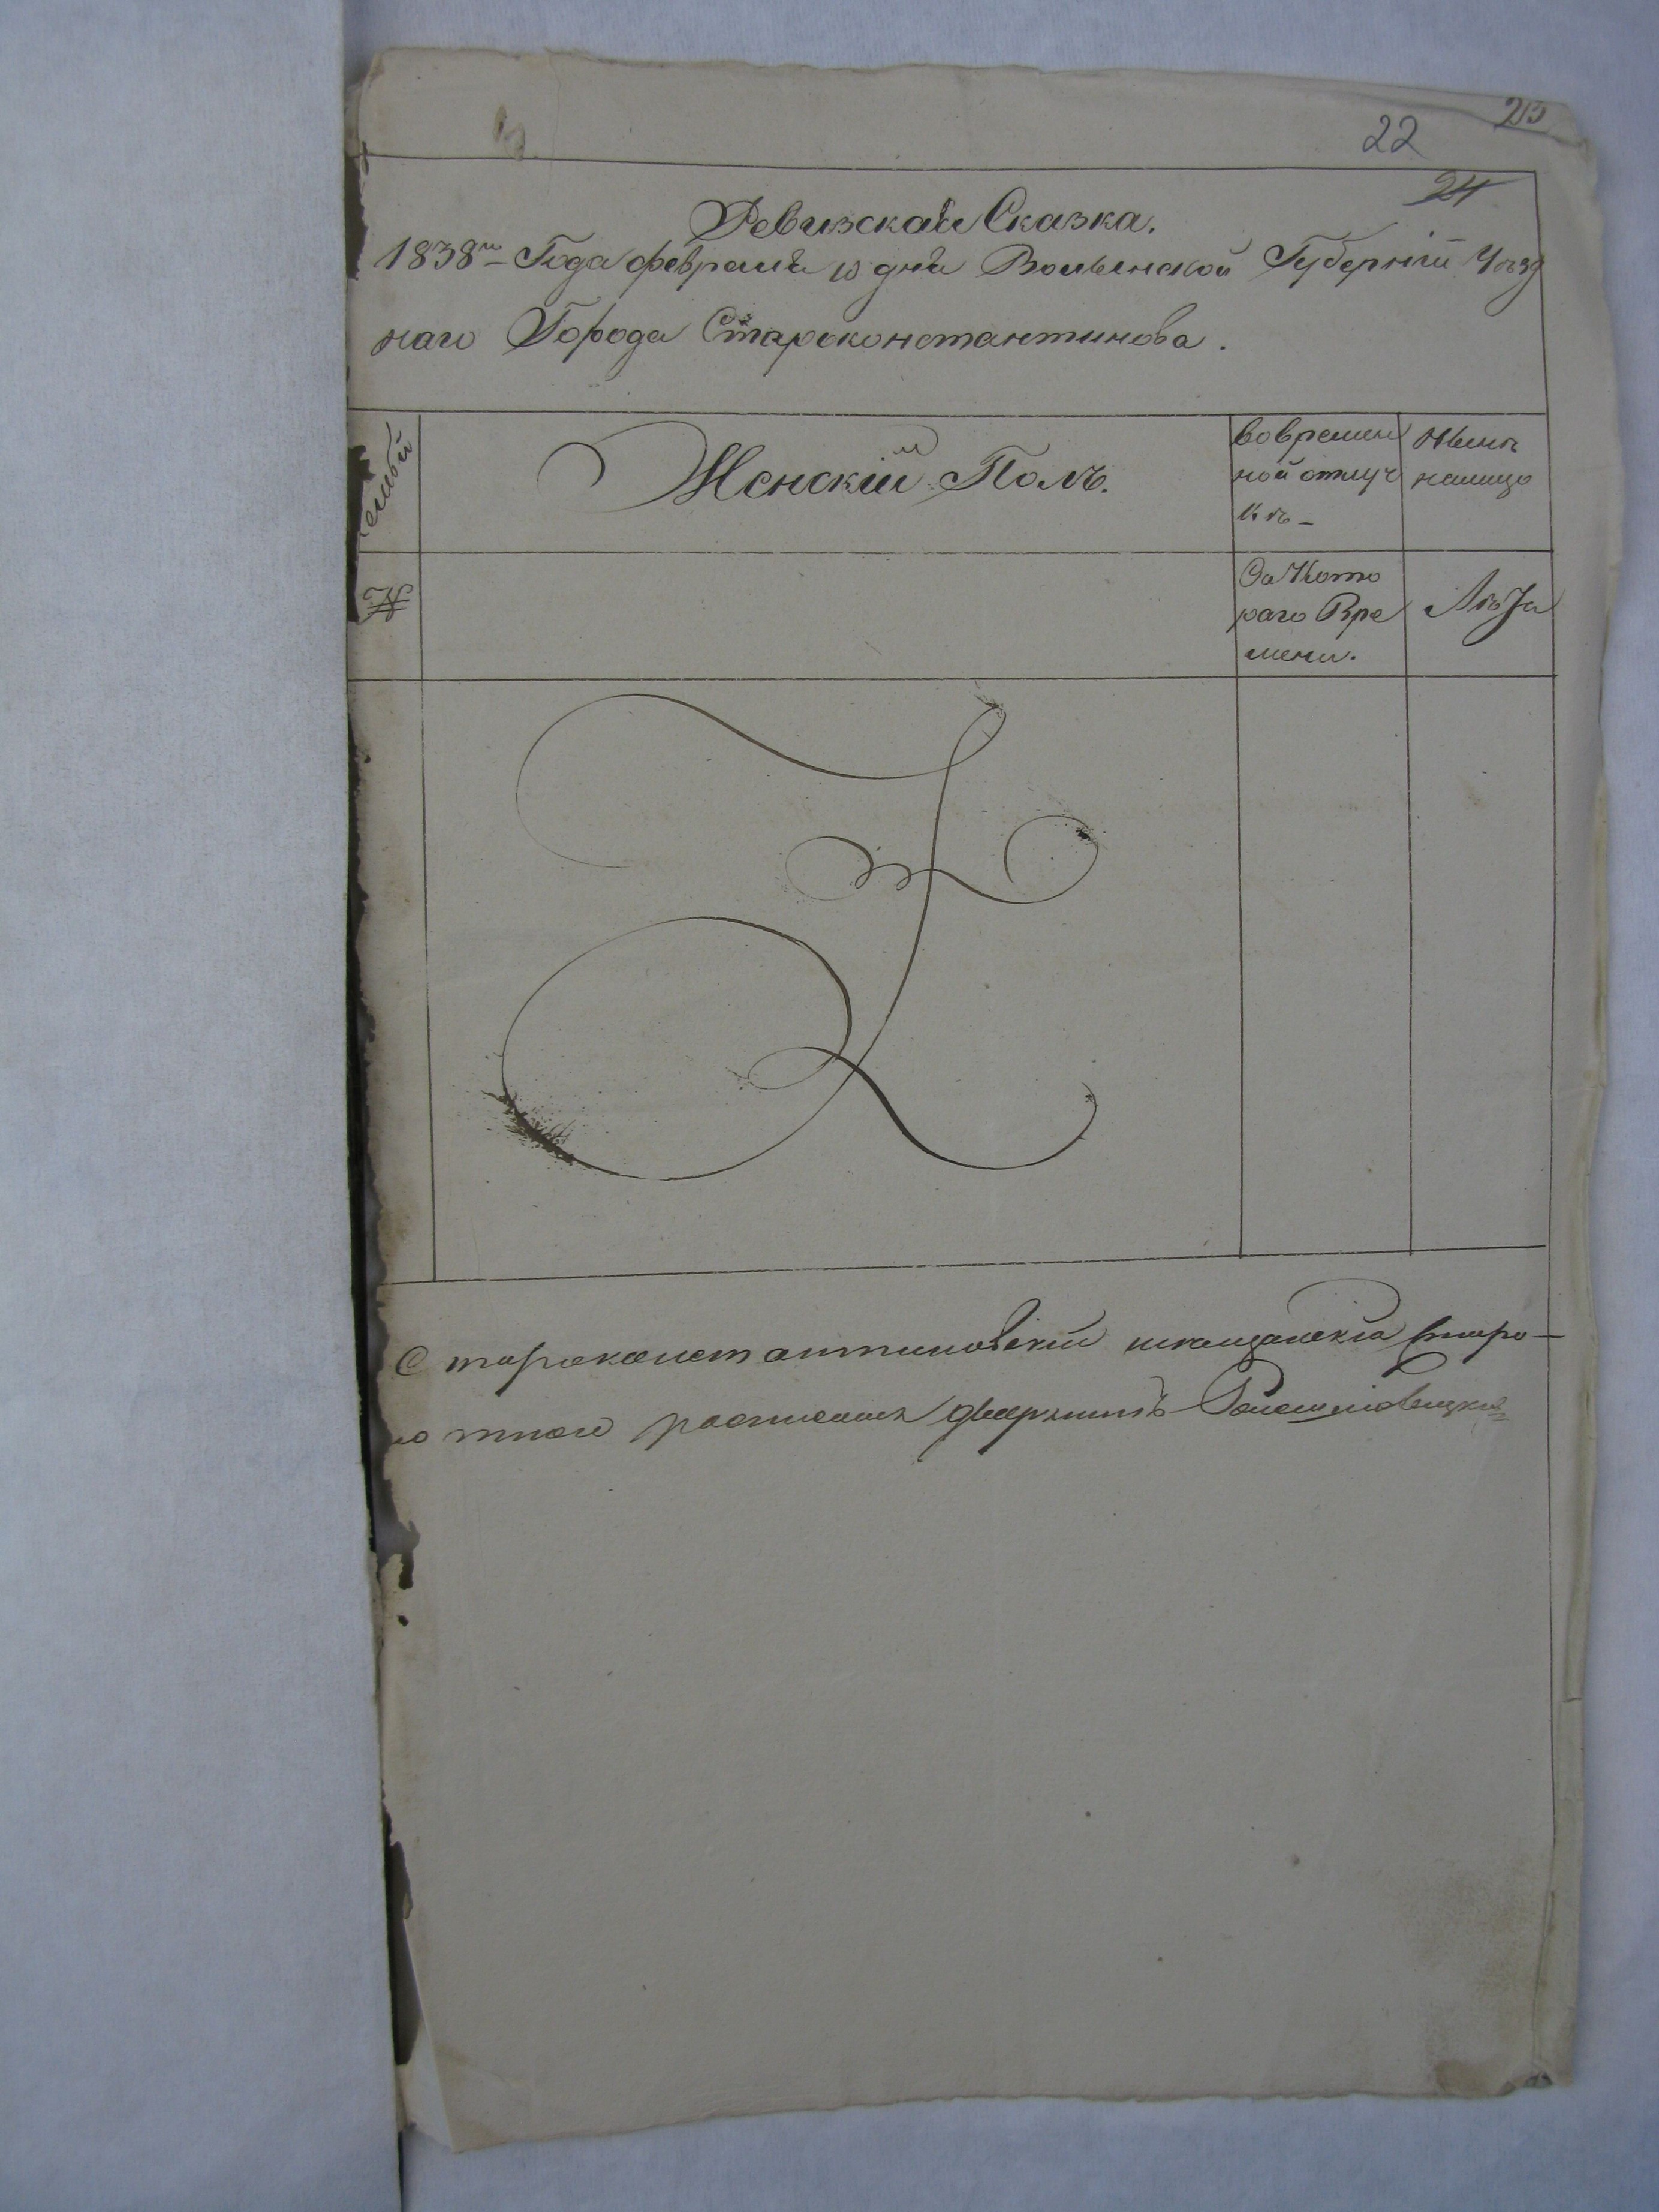 22
24
Ревизская Сказка.
1838го Года февраля 10 дня Волынской Губерніи Уѣзд
наго Города Староконстантинова.
Женскій Полъ.
во времен
ной отлуч
кѣ –
Нынѣ
налицо
семьи
№
Съ Кото
раго Вре
мени.
Лѣта
Староконстантиновскій мещанскій Старо–